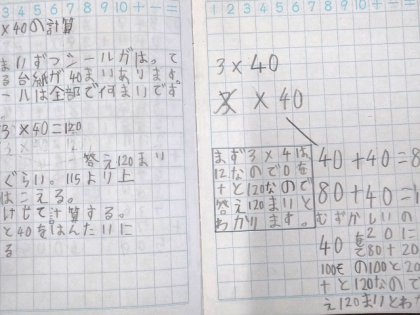 1 2 3 4 5 6 7 8 9 10 + − × ÷ =
×40の計算
まいずつシールがは。て
る台紙が40まいあります。
ールは全部で何まいです
。
3×40=120
答え120まい
ぐらい。115より上
はこえる。
けして計算する。
と40をはんたいに
る
1 2 3 4 5 6 7 8 9 10 + − × ÷ =
3×40
× 40
まず3×4は
12なので0を
+と120なので
答え120まいと
わかります。
40+40=8
80+40=1
むずかしいの
40を20に
て80+20
100その100と20
+と120なので
え120まいとわ